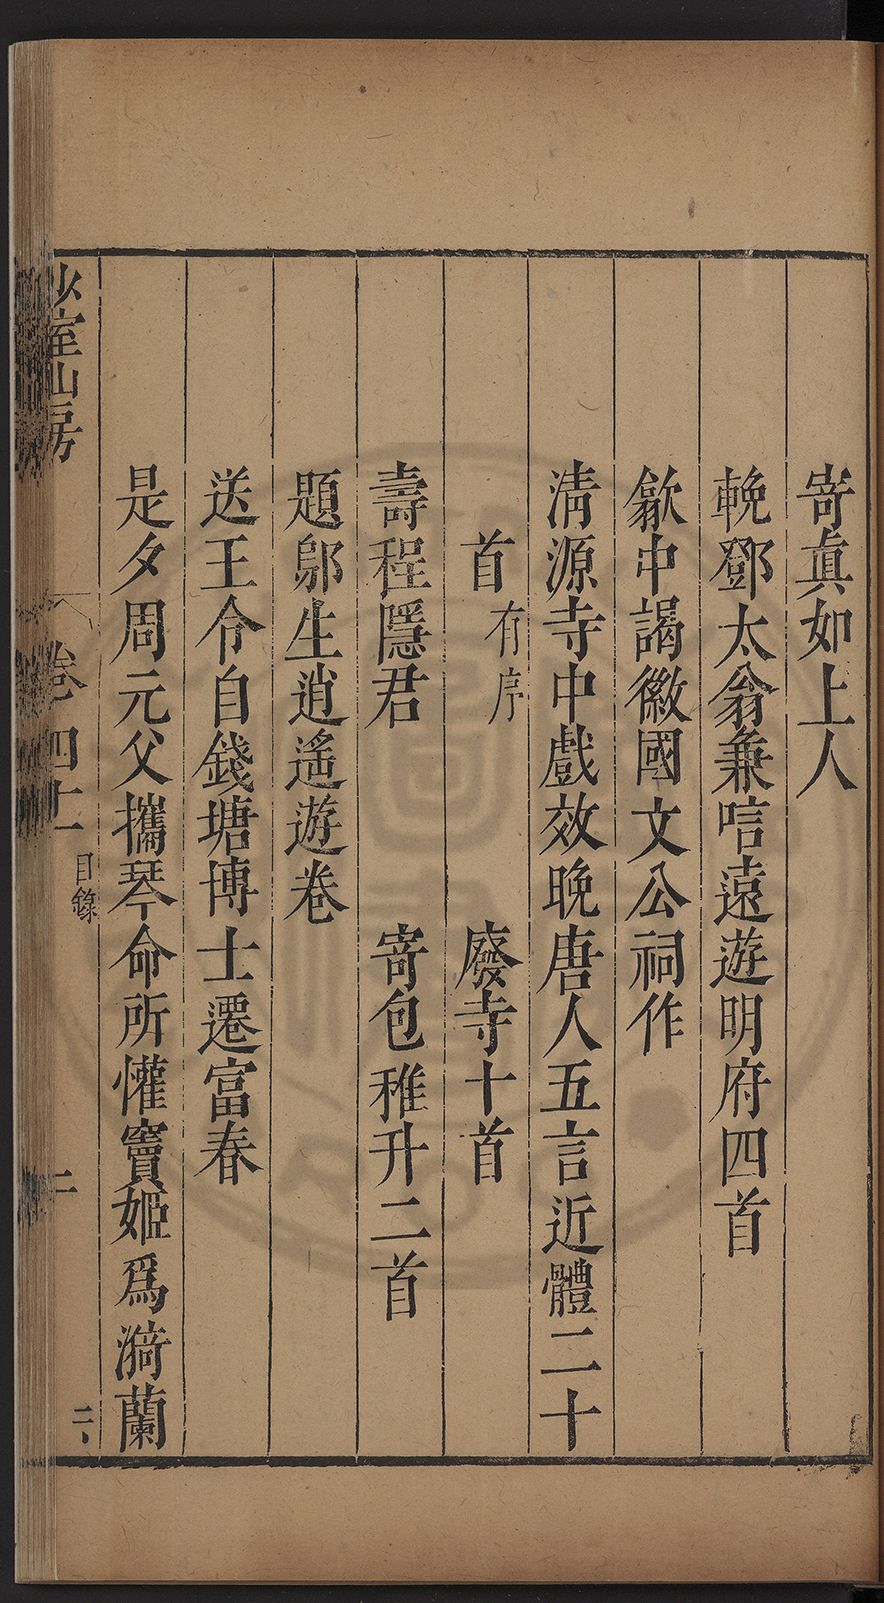 寄真如上人
輓鄧太翁兼唁遠遊明府四首
歙中謁徽國文公祠作
淸源寺中戲效晚唐人五言近體二十
首有序 廢寺十首
壽程隱君 寄包稚升二首
題鄔生逍遙遊卷
送王令自錢塘博士遷富春
是夕周元父攜琴命所懽竇姬爲漪蘭
少室山房 卷四十 目錄 二 二